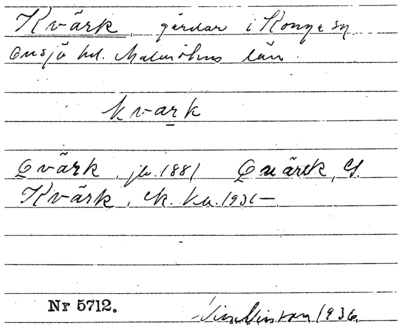 Kvärk, gårdar i Konga sn
Onsjö hd. Malmöhus län.
kvark
Qvärk, jb. 1881 Quärck, G.
Kvärk, ek. ka. 1931–
Nr 5712.
1936